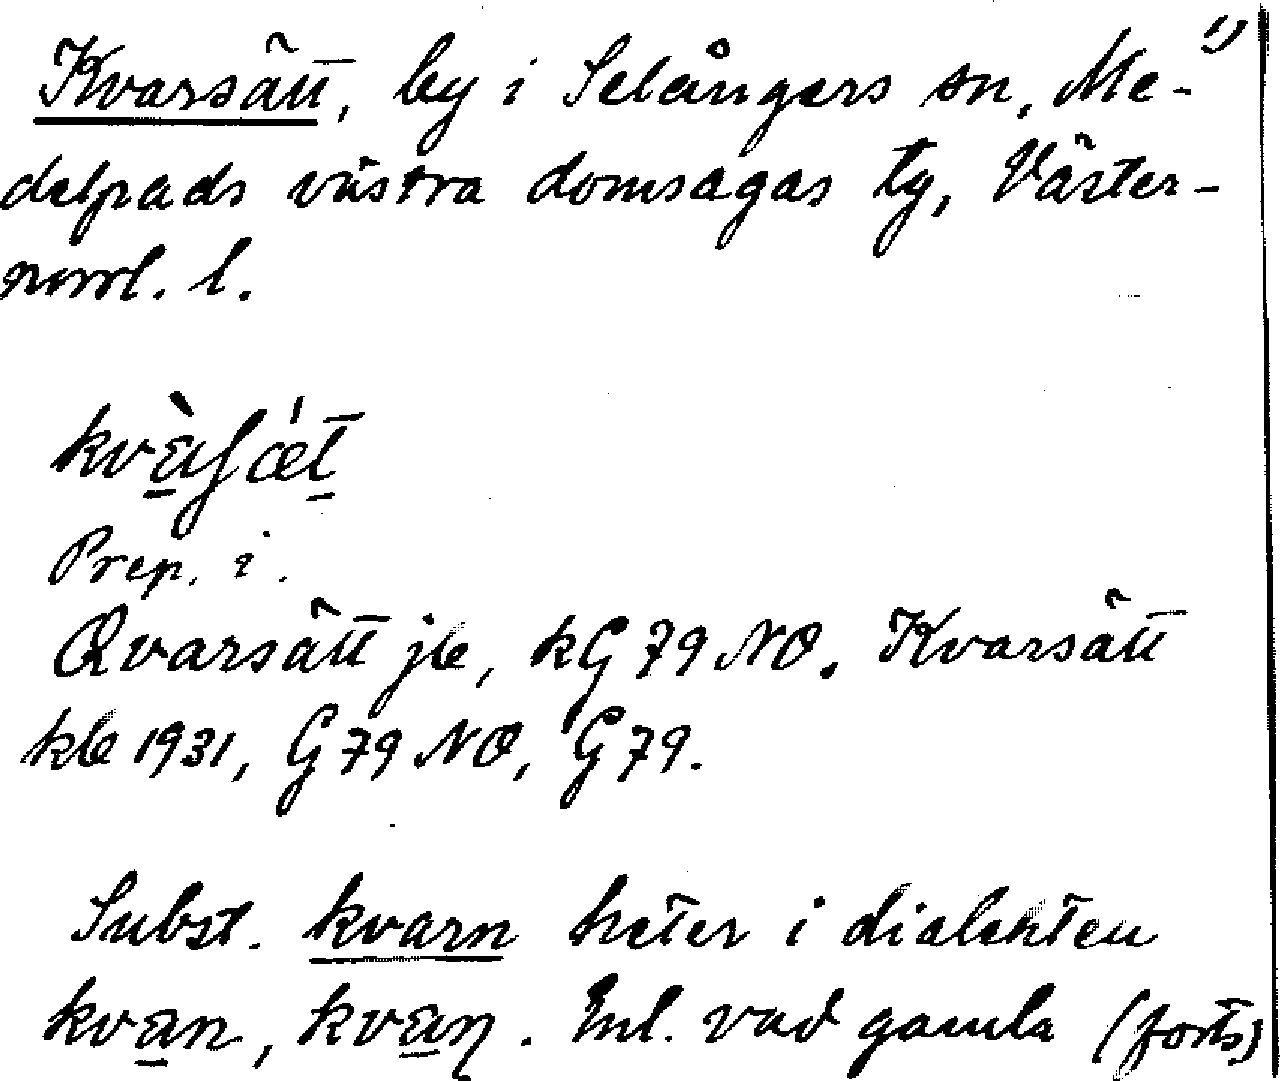 Kvarsätt, by i Selångers sn, Me- 1)
delpads västra domsagas tg, Väster-
norrl. l.
Prep. i.
Qvarsätt jb, kG 79 NO. Kvarsätt
kb 1931, G 79 NO, G 79.
Subst. kvarn heter i dialekten
kvan, kvaɳ. Enl. vad gamla (forts)